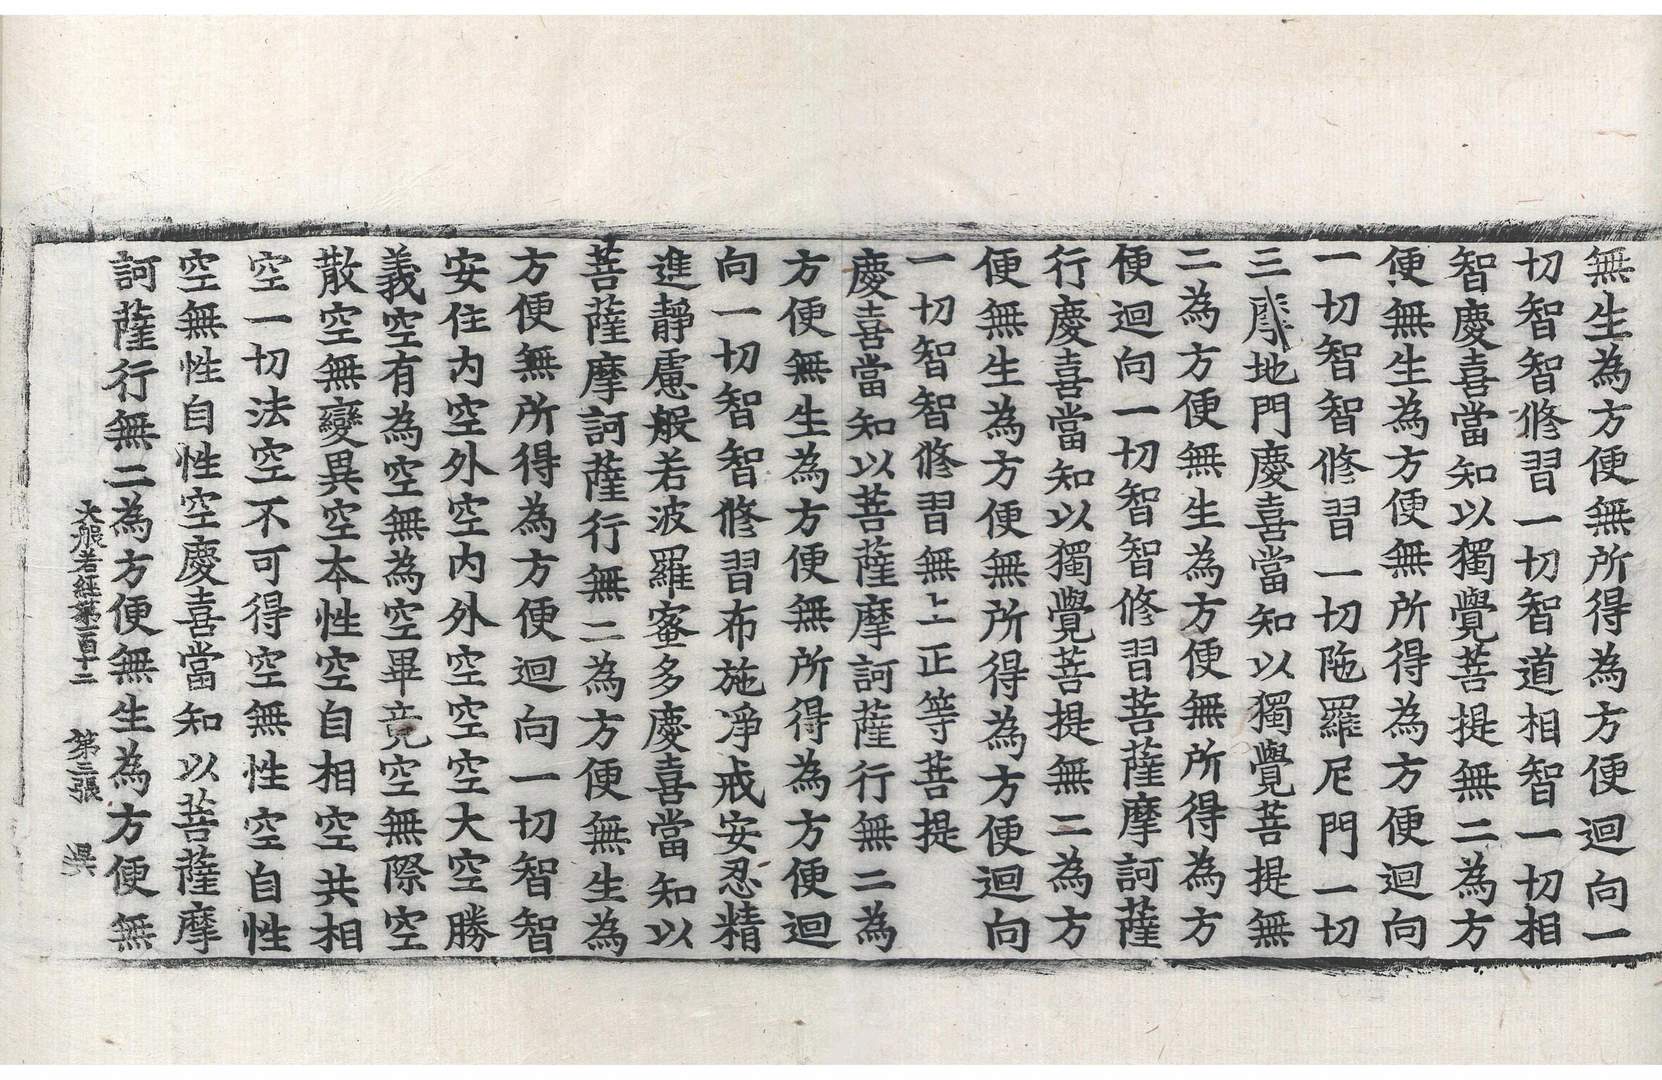 無生為方便無所得為方便迴向一
切智智修習一切智道相智一切相
智慶喜當知以獨覺菩提無二為方
便無生為方便無所得為方便迴向
一切智智修習一切陁羅尼門一切
三摩地門慶喜當知以獨覺菩提無
二為方便無生為方便無所得為方
便迴向一切智智修習菩薩摩訶薩
行慶喜當知以獨覺菩提無二為方
便無生為方便無所得為方便迴向
一切智智修習無上正等菩提
慶喜當知以菩薩摩訶薩行無二為
方便無生為方便無所得為方便迴
向一切智智修習布施淨戒安忍精
進靜慮般若波羅蜜多慶喜當知以
菩薩摩訶薩行無二為方便無生為
方便無所得為方便迴向一切智智
安住內空外空內外空空空大空勝
義空有為空無為空畢竟空無際空
散空無變異空本性空自相空共相
空一切法空不可得空無性空自性
空無性自性空慶喜當知以菩薩摩
訶薩行無二為方便無生為方便無
大般若經第一百十二 第三張 昃